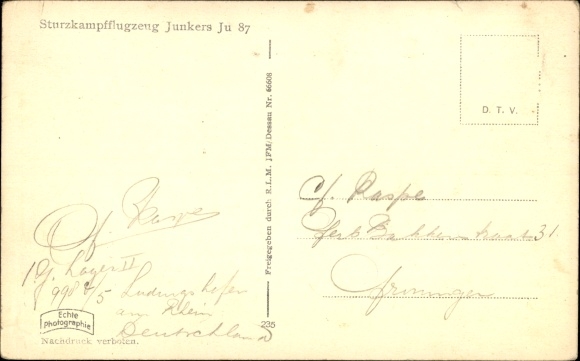 Sturzkampfflugzeug Junkers Ju 87
D. T. V.
Freigegeben durch R.L.M. JFM/Dessau Nr. 66608
Cf. Raspe
31
Groningen
Raspe
Lager II
998 Ludwigshafen
am Rhein
Deutschland
Echte
Photographie
235
Nachdruck verboten.